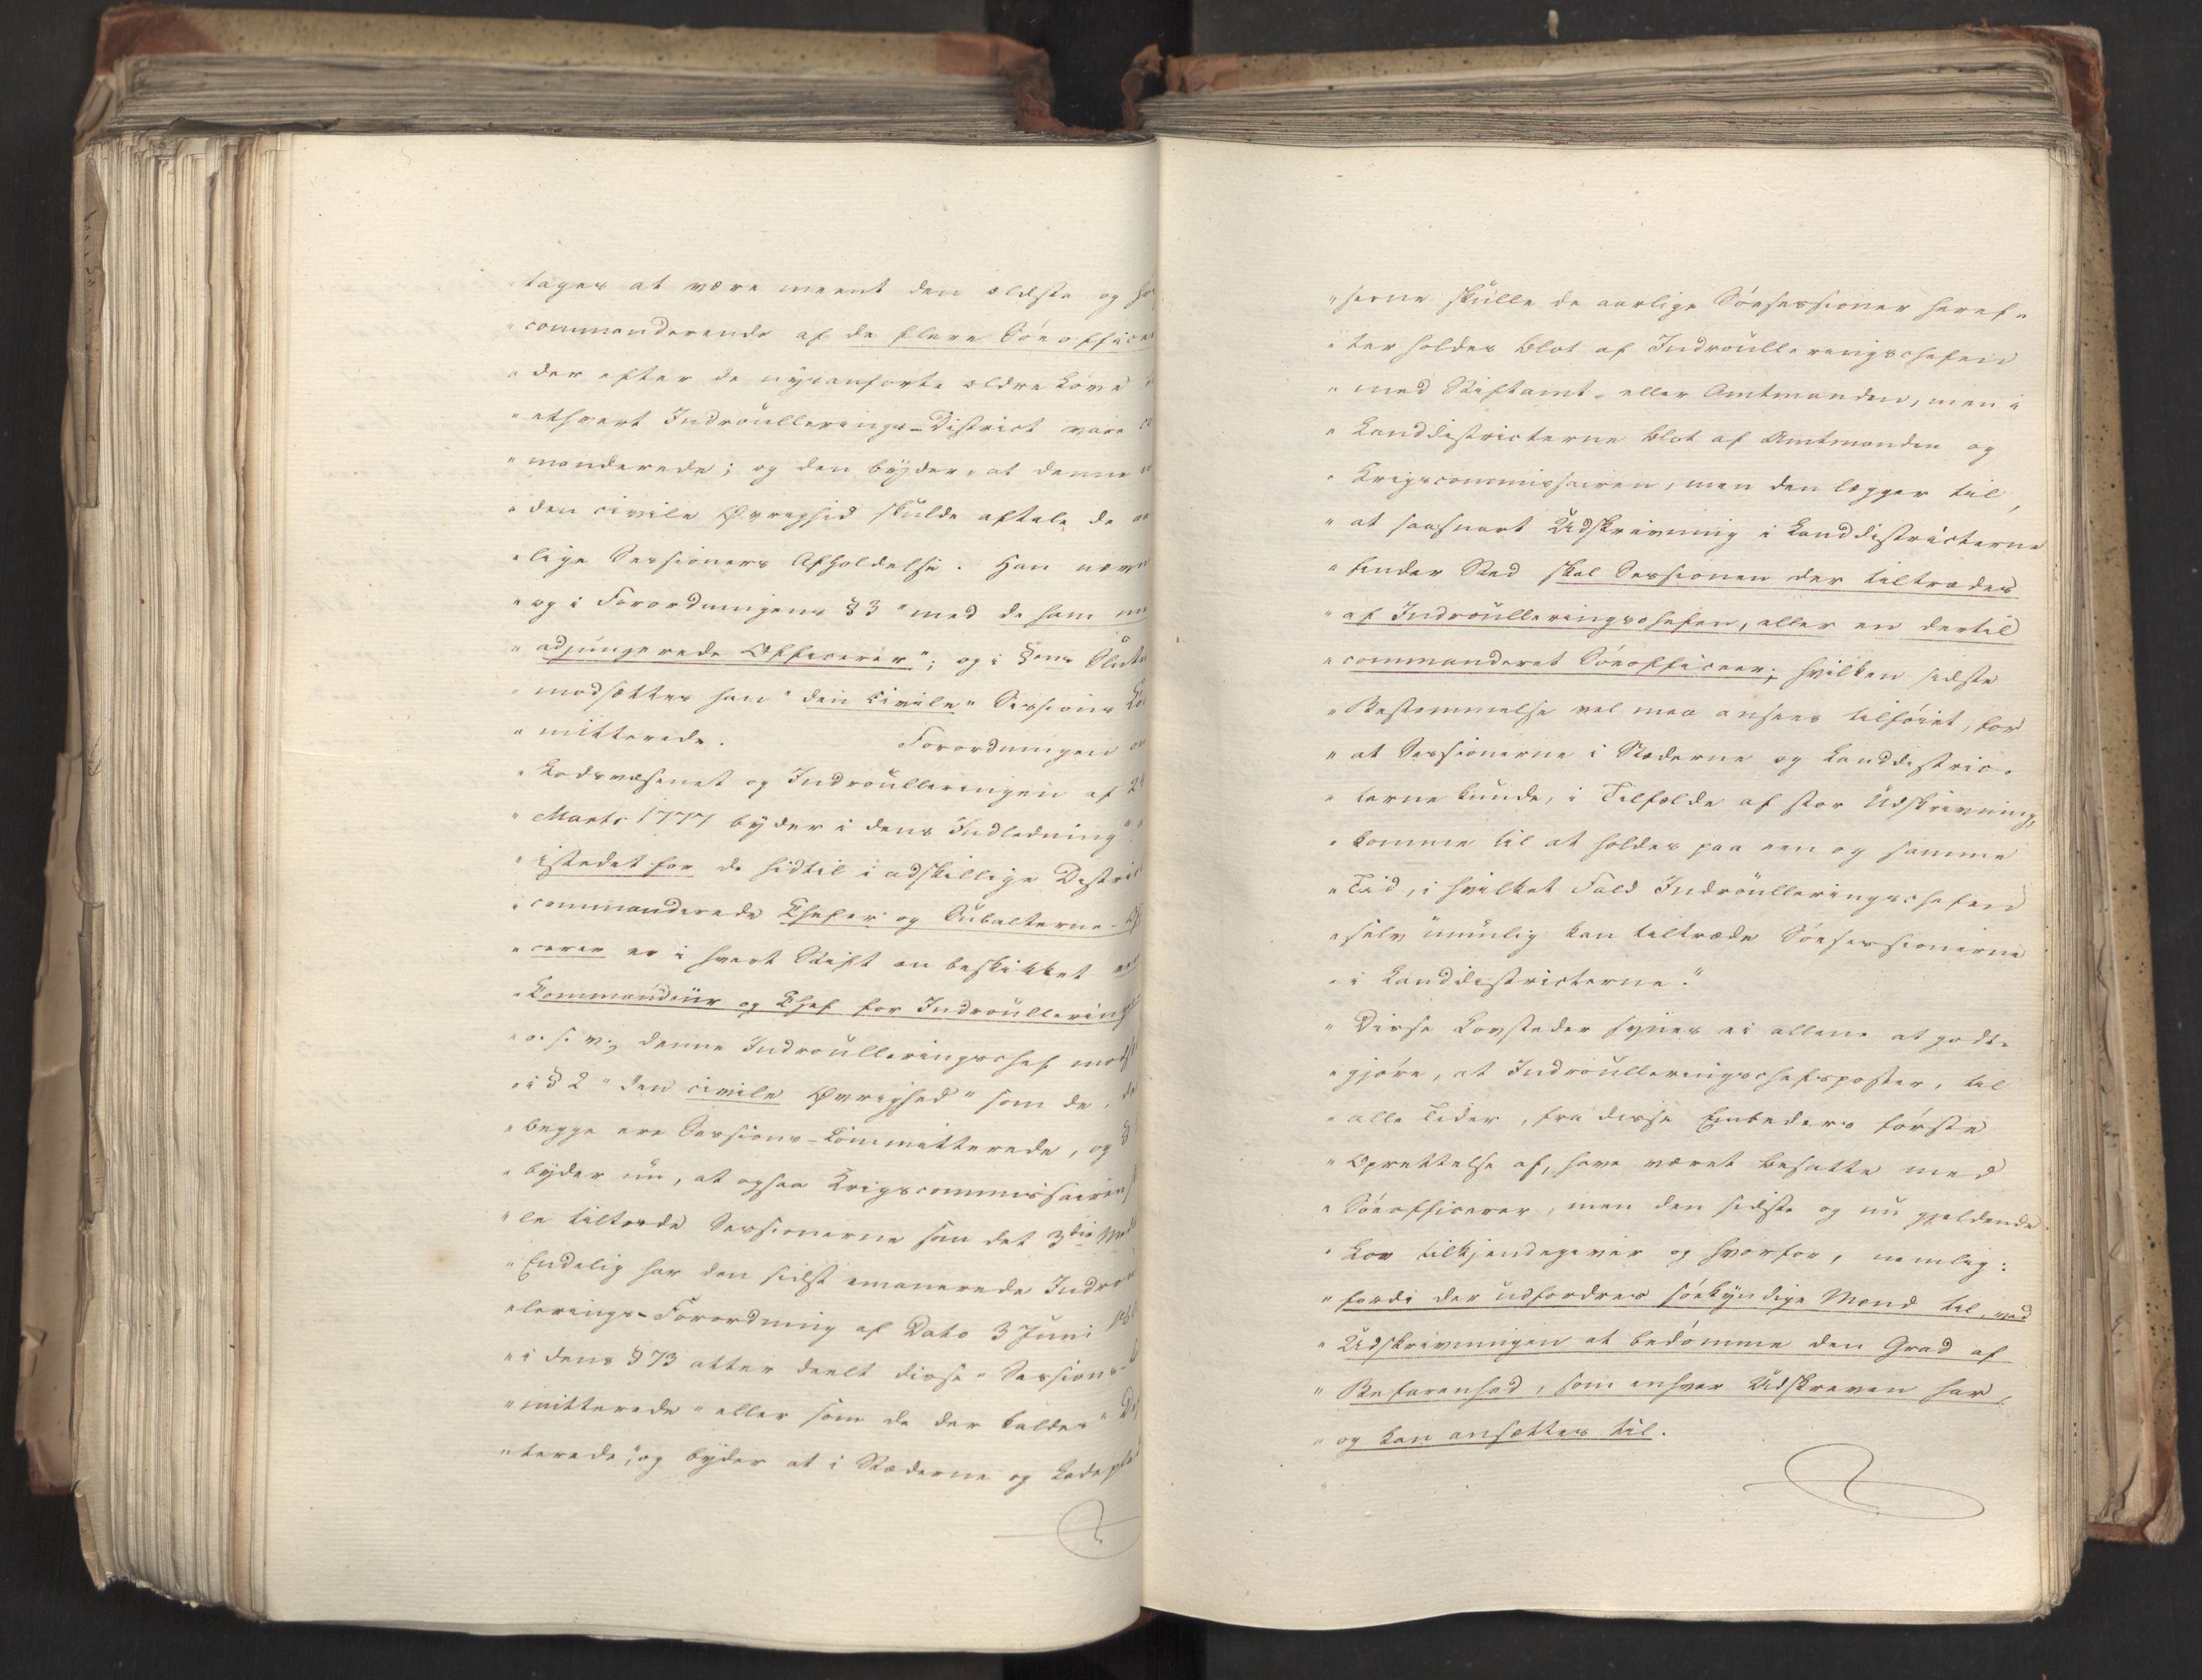 "tages at være meent den ældste og
"commanderende af de flere Söeofficer
"der efter de nysanførte ældre Love
"ethvert Indroulleringa-District vare
"manderede; og den byder, at denne
"den civile Øvrighed skulde aftale de
"lige Sessioners Afholdelse. Han næv
"og i Forordningens § 3 "med de ham
"adjungerede Officerer"; og i §ens Slutn
"modsættes han "den civile" Sessions
"mitterede. Forordningen
"Lodsvæsenet og Indroulleringen af
"Marts 1777 byder i dens Indledning"
"istedet for de hidtil i adskillige Distri
"commanderede Chefer og Subalterne-
"cerer er i hvert Stift en beskikket
"Commandeur og Chef for Indroullering
"o. s. v.; denne Indroulleringschef mods
"i § 2 "den civile Øvrighed" som de,
"begge ere Sessions-Committerede, og §
"byder nu, at ogsaa Krigscommissairen
"le tiltræde Sessionerne som det 3die Med
"Endelig har den sidst emanerede Indrou
"lerings-Forordning af Dato 3 Juni
"i dens § 73 atter deelt disse "Sessions-
"mitterede" eller som de der kaldes "
"terede", og byder at i Stæderne og Ladepla
"serne skulle de aarlige Söesessioner heref-
"ter holdes blot af Indroulleringschefen
"med Stiftamt- eller Amtmanden, men i
"Landdistricterne blot af Amtmanden og
"Krigscommissairen, men den lægger til,
"at saasnart Udskrivning i Landdistricterne
"finder Sted skal Sessionen der tiltrædes
"af Indroulleringschefen, eller en dertil
"commanderet Söeofficeer; hvilken sidste
"Bestemmelse vel maa ansees tilföiet, for
"at Sessionerne i Stæderne og Landdistric-
"terne kunde, i Tilfælde af stor Udskrivning,
"komme til at holdes paa een og samme
"Tid, i hvilket Fald Indroulleringschefen
"selv umulig kan tiltræde Söesessionerne
"i Landdistricterne."
"Disse Lovsteder synes ei allene at godt-
"gjöre, at Indroulleringschefsposter, til
"alle Tider, fra disse Embeders förste
"Oprettelse af, have været besatte med
"Söeofficerer, men den sidste og nu gjeldende
"Lov tilkjendegiver og hvorfor, nemlig:
"fordi der udfordres söekyndige Mænd til, ved
"Udskrivningen at bedömme den Grad af
"Befarenhed, som enhver Udskreven har,
"og kan ansættes til.
"